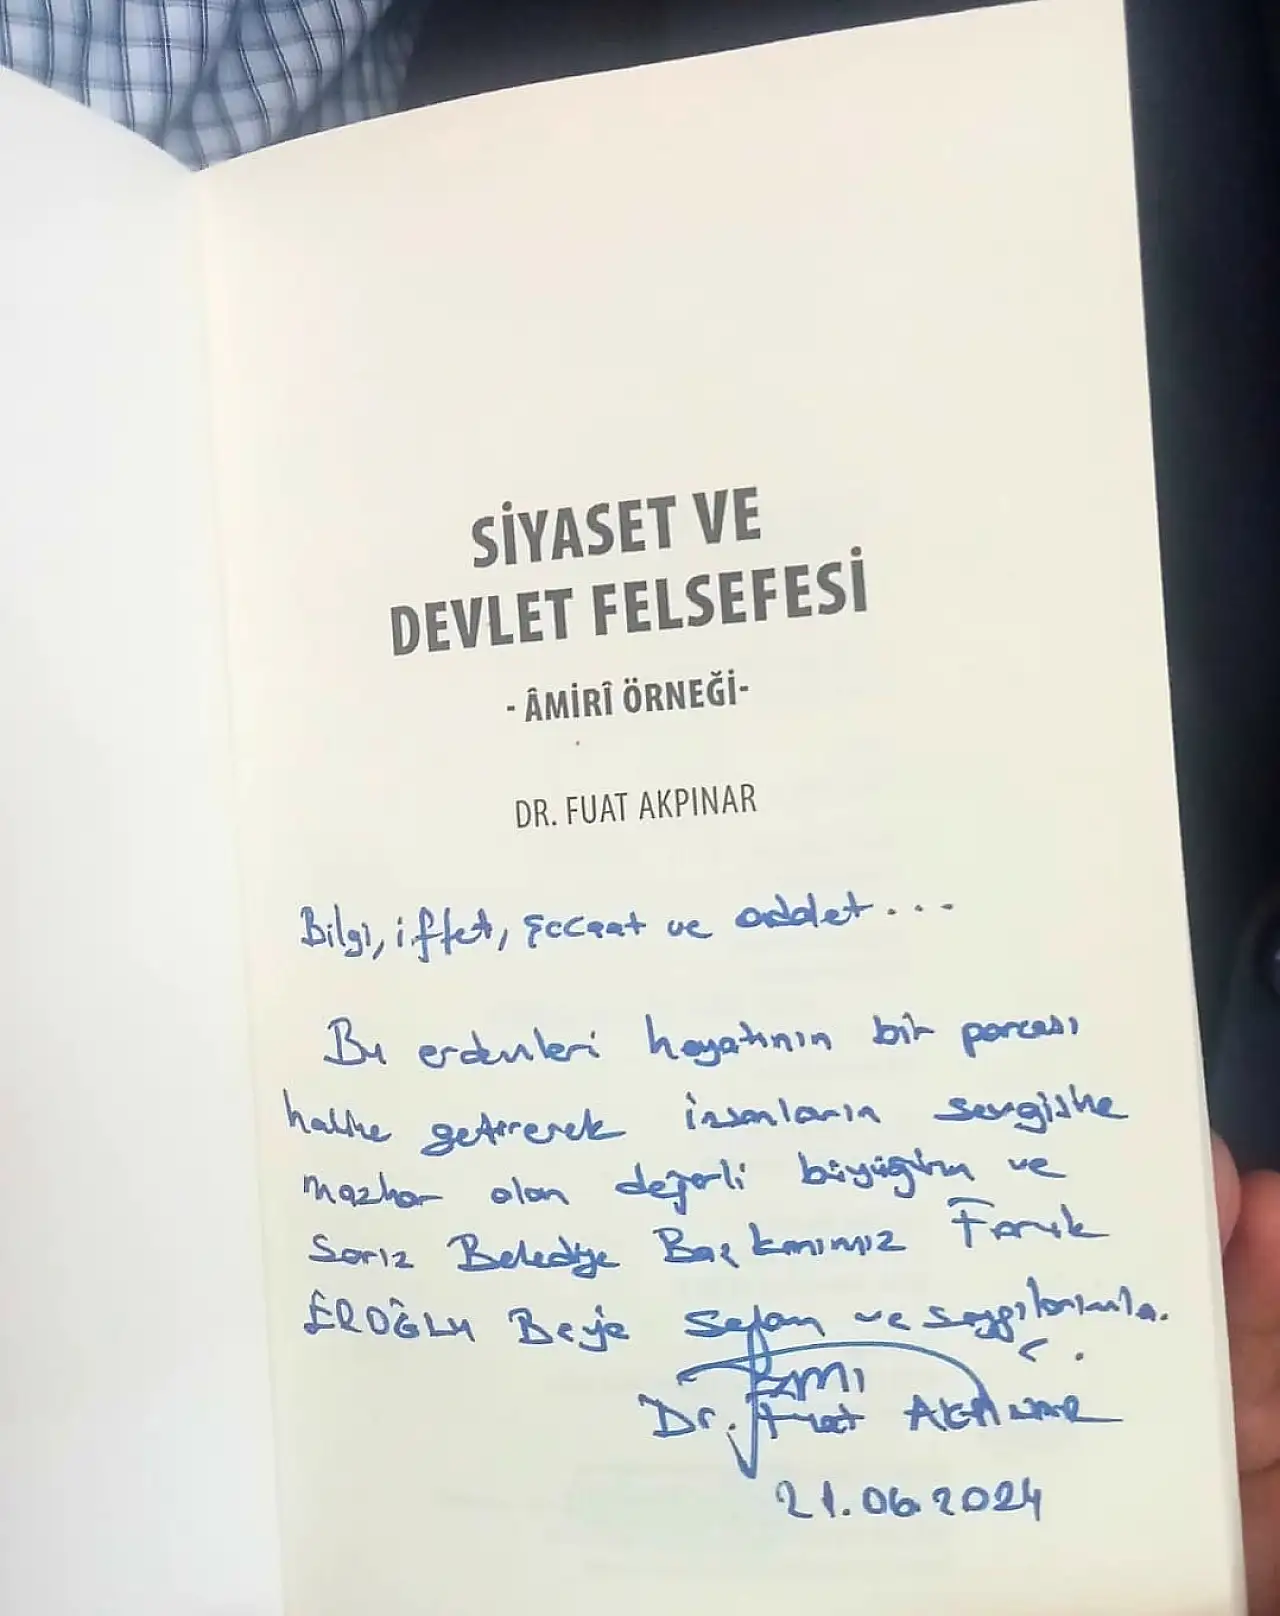 SİYASET VE
DEVLET FELSEFESİ
- ÂMİRÎ ÖRNEĞİ-
DR. FUAT AKPINAR
Bilgi, iffet, şecaat ve adalet...
Bu erdemleri hayatının bir parçası
haline getirerek insanların sevgisine
mazhar olan değerli büyüğüm ve
Sarız Belediye Başkanımız Faruk
EROĞLU Beye selam ve saygılarımla.
Dr. Fuat AKPINAR
21.06.2024